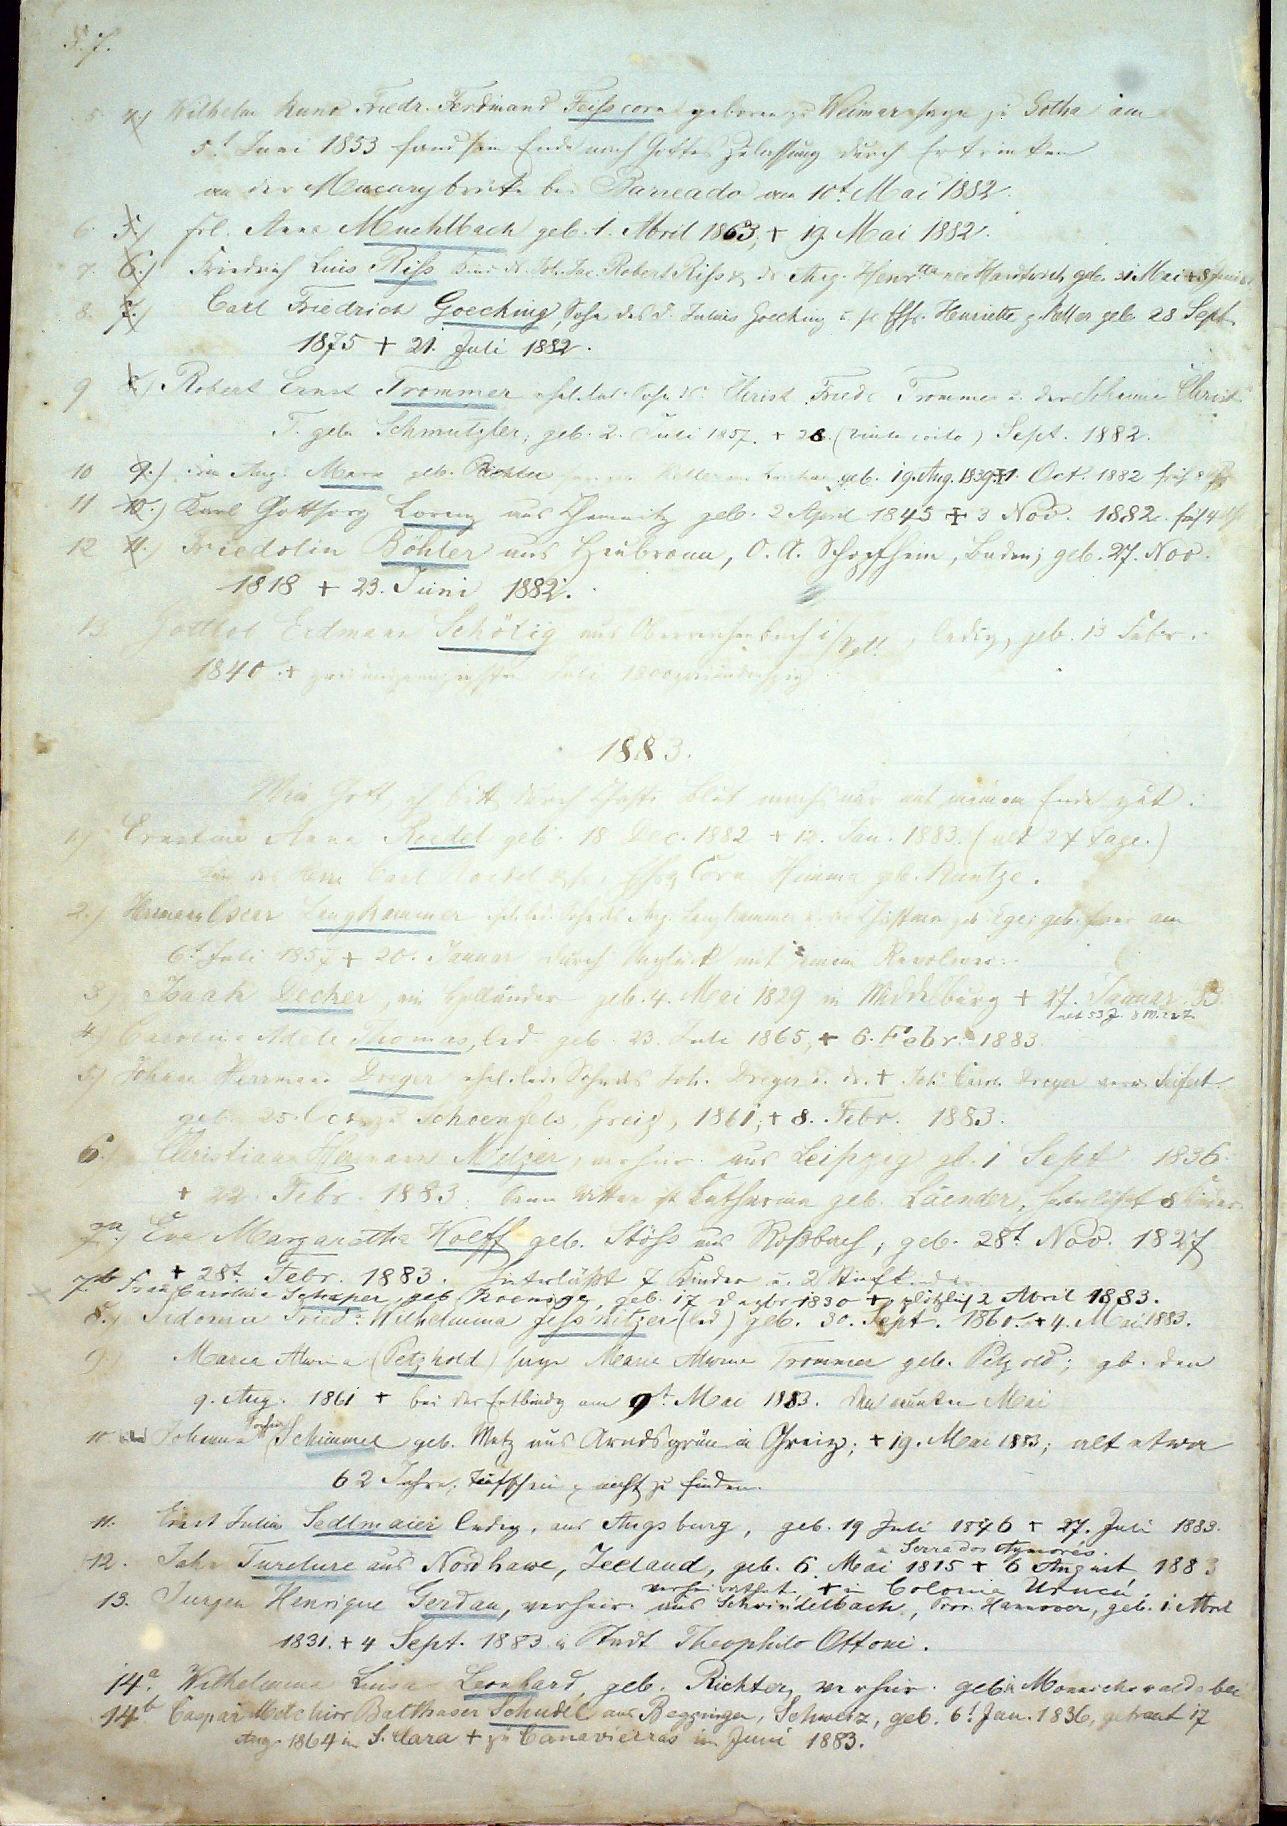 5. 4.) Wilhelm Kuno Friedr. Ferdinand Feisscorn geboren zu Weimar, sage zu Gotha am
5t Juni 1853 fand sein Ende nach Gottes Zulassung durch Ertrinken
an der Mucurybrücke bei am 10t Mai 1882.
6. 5.) Frl. Anna Muehlbach geb. 1. April 1863, + 19. Mai 1882.
7. 6.) Friedrich Luis Riss Kind d. Joh. Jac. Robert Riss & der Aug. geb. 31 Mai + 8 Juni
8. 7.) Carl Friedrich Goecking, Sohn des d. Julius Goecking u. sr Ehfr. Henriette g. Keller geb. 28 Sept.
1875 + 21. Juli 1882.
9 8.) Robert Ernst Trommer ehel. led. Sohn ds Christ. Friedr. Trommer u. der Johanne Christ.
T. geb. Schmutzler, geb. 2. Juli 1857. + 28. Sept. 1882.
10 9.) Aug. Marx geb. Richter geb. 19. Aug. 1839 + 1. Oct. 1882 früh
11 10.) Karl Gottfory Lorenz aus Chemnitz geb. 2 April 1845 + 3 Nov. 1882. früh 4
12 11.) Friedolin Böhler aus O. A. Schopfheim, Baden; geb. 27. Nov.
1818 + 23. Juni 1882.
13. Gottlob Erdmann Schölig aus Oberreichenbach i/ ledig, geb. 13 Febr.
1840. + Juli
1883.
Mein Gott, ich bitt durch Christi Blut machs nur mit meinem Ende gut.
1.) Ernestine Anna Roedel geb. 18 Dec. 1882 + 12. Jan. 1883. (alt 27 Tage.)
Kind des Herrn Carl Roedel Cora Hemma geb. Kuntze.
2.) Hermann Oscar Langhammer ehel. led. Sohn ds Aug. Langhammer u. der geb. Eger geb. hier am
6t Juli 1857 + 20. Januar durch Unglück mit seinem Revolver.
3.) Isaak Decker, ein Holländer geb. 4. Mai 1829 in Middelburg + 27. Januar 83
alt 53 J. 8 M.
4.) Caroline Adele Thomas, led. geb. 23. Juli 1865, + 6. Febr. 1883.
5.) Johann Herrmann Dreyer ehel. led. Sohn des Joh. Dreyer u. dr + Joh. Carol. Dreyer verw. Seifert
geb. 25. Oct. zu Schoenfels, Greiz, 1861, + 8. Febr. 1883.
6.) Christian Hermann Metzer, verheir. aus Leipzig gb. 1 Sept 1836.
+ 22. Febr. 1883. Seine Wittwe ist Catharina geb. Laender, hinterlässt 8 Kinder.
7a.) Eva Margaretha Wolff geb. Stöss aus Rossbach, geb. 28t Nov. 1827
+ 28t Febr. 1883. Hinterlässt 7 Kinder u. 2 Stiefkinder
7b Frau Caroline Schaper, geb. Koenige, geb. 17 Decbr 1830 + plötzlich 2 April 1883.
8.) Sidonia Fried. Wilhelmina Jessnitzer (led) geb. 30. Sept. 1860. + 4. Mai 1883.
9.) Maria Alwina (Petzhold) sage Marie Alwine Trommer geb. Petzold; gb. den
9. Aug. 1861 + bei der Entbindg am 9t Mai 1883. Den neunten Mai
10 Johanna Sophia Schimmel geb. Metz aus Arndsgrün in Greiz; + 19. Mai 1883; alt etwa
62 Jahre; Taufschein nicht zu finden.
11. Ernst Julius Sedlmaier ledig, aus Augsburg, geb. 19 Juli 1846 + 27. Juli 1883.
12. Jahn Turelure aus Nordhawe, Zeeland, geb. 6. Mai 1815 + 6 August 1883
a Serra dos Aymorés.
verheirathet. + in Colonie Urucú.
13. Jurgen Henrique Gerdau, verheir. aus Schwindelbach, Prov. Hannover, geb. 1. April
1831. + 4 Sept. 1883. in Stadt Theophilo Ottoni.
14a. Wilhelmina Luisa Leonhard, geb. Richter, verheir. geb. in Mannichswalde bei
14b Caspar Melchior Balthaser Schudel aus Beggingen, Schweiz, geb. 6t Jan. 1836, getraut 17
Aug. 1864 in S. Clara + zu Canavieiras im Juni 1883.